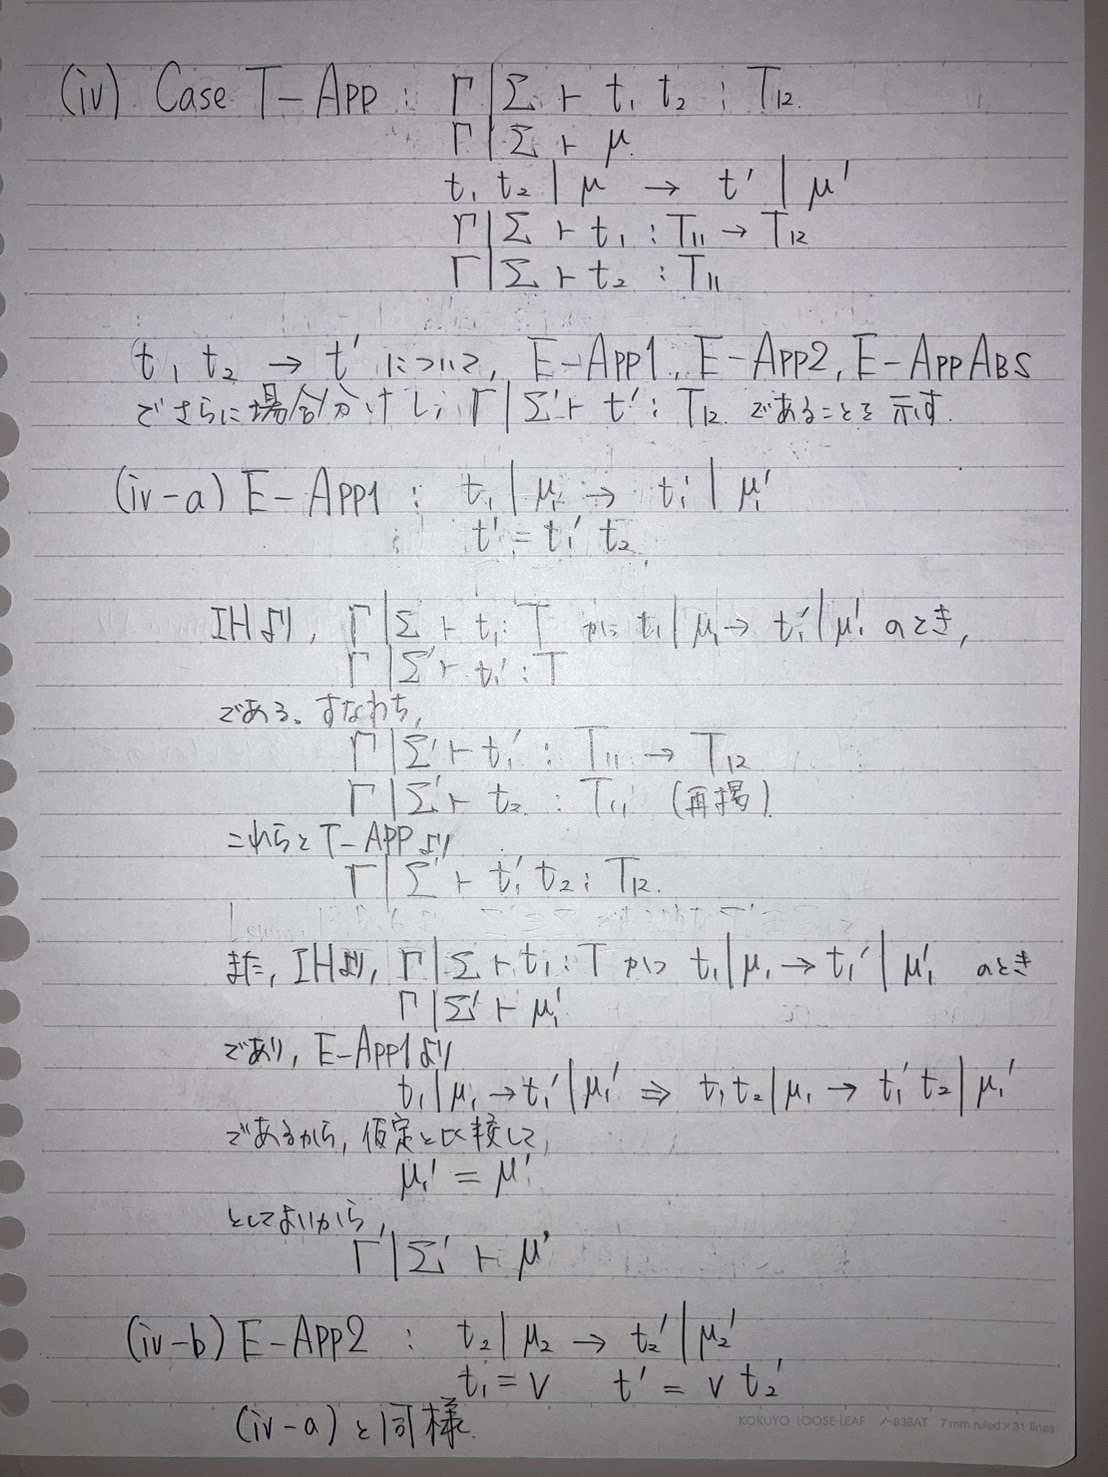 (iv) Case T-App : Γ | Σ ⊢ t₁ t₂ : T₁₂.
Γ | Σ ⊢ μ.
t₁ t₂ | μ → t' | μ'
Γ | Σ ⊢ t₁ : T₁₁ → T₁₂
Γ | Σ ⊢ t₂ : T₁₁
t₁ t₂ → t' について, E-App1, E-App2, E-AppABS
でさらに場合分けし, Γ | Σ' ⊢ t' : T₁₂. であることを示す.
(iv-a) E-App1 : t₁ | μ₁ → t₁' | μ₁'
t' = t₁' t₂.
IHより, Γ | Σ ⊢ t₁ : T かつ t₁ | μ₁ → t₁' | μ₁' のとき,
Γ | Σ' ⊢ t₁' : T
である。すなわち,
Γ | Σ' ⊢ t₁' : T₁₁ → T₁₂
Γ | Σ' ⊢ t₂ : T₁₁ (再掲).
これらと T-APP より
Γ | Σ' ⊢ t₁' t₂ : T₁₂.
また, IHより, Γ | Σ ⊢ t₁ : T かつ t₁ | μ₁ → t₁' | μ₁' のとき
Γ | Σ' ⊢ μ₁'
であり, E-App1より
t₁ | μ₁ → t₁' | μ₁' ⇒ t₁ t₂ | μ₁ → t₁' t₂ | μ₁'
であるから, 仮定と比較して,
μ₁' = μ'
としてよいから,
Γ | Σ' ⊢ μ'
(iv-b) E-App2 : t₂ | μ₂ → t₂' | μ₂'
t₁ = v t' = v t₂'
(iv-a) と同様.
KOKUYO LOOSE-LEAF ノ-836AT 7 mm ruled×31 lines